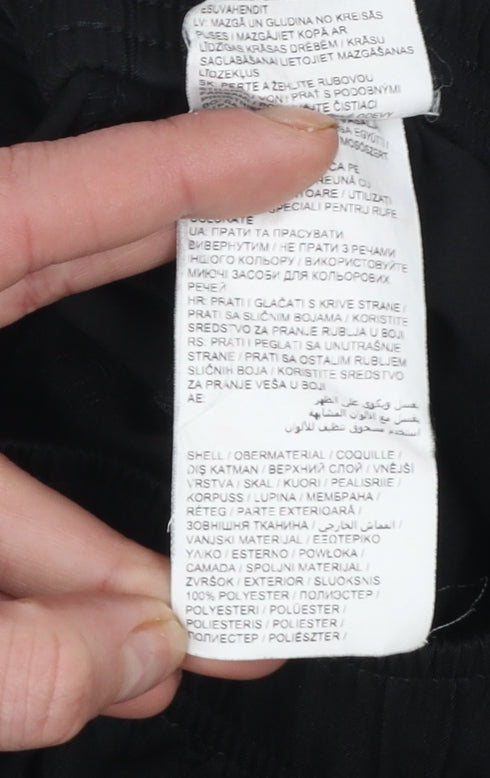 ESUVAHENDIT
LV: MAZGĀ UN GLUDINA NO KREISĀS
PUSES / MAZGĀJIET KOPĀ AR
LĪDZĪGAS KRĀSAS DRĒBĒM / KRĀSU
SAGLABĀŠANAI LIETOJIET MAZGĀŠANAS
LĪDZEKĻUS
SK: PERTE A ŽEHLITE RUBOVOU
PRAŤ S PODOBNÝMI
ČISTIACI
EGYÜTT /
MOSÓSZERT
CA PE
OARE / UTILIZAȚI
SPECIALI PENTRU RUFE
COLORATE
UA: ПРАТИ ТА ПРАСУВАТИ
ВИВЕРНУТИМ / НЕ ПРАТИ З РЕЧАМИ
ІНШОГО КОЛЬОРУ / ВИКОРИСТОВУЙТЕ
МИЮЧІ ЗАСОБИ ДЛЯ КОЛЬОРОВИХ
РЕЧЕЙ
HR: PRATI I GLAČATI S KRIVE STRANE /
PRATI SA SLIČNIM BOJAMA / KORISTITE
SREDSTVO ZA PRANJE RUBLJA U BOJI
RS: PRATI I PEGLATI SA UNUTRAŠNJE
STRANE / PRATI SA OSTALIM RUBLJEM
SLIČNIH BOJA / KORISTITE SREDSTVO
ZA PRANJE VEŠA U BOJI
AE: يغسل ويكوى على الظهر
يغسل مع الألوان المشابهة
استخدم مسحوق تنظيف للألوان
SHELL / OBERMATERIAL / COQUILLE /
DIŞ KATMAN / ВЕРХНИЙ СЛОЙ / VNĚJŠÍ
VRSTVA / SKAL / KUORI / PEALISRIIE /
KORPUSS / LUPINA / МЕМБРАНА /
RÉTEG / PARTE EXTERIOARĂ /
ЗОВНІШНЯ ТКАНИНА / القماش الخارجي /
VANJSKI MATERIJAL / ΕΞΩΤΕΡΙΚΟ
ΥΛΙΚΟ / ESTERNO / POWŁOKA /
CAMADA / SPOLJNI MATERIJAL /
ZVRŠOK / EXTERIOR / SLUOKSNIS
100% POLYESTER / ПОЛИЭСТЕР /
POLYESTERI / POLÜESTER /
POLIESTERIS / POLIESTER /
ПОЛИЕСТЕР / POLIÉSZTER /